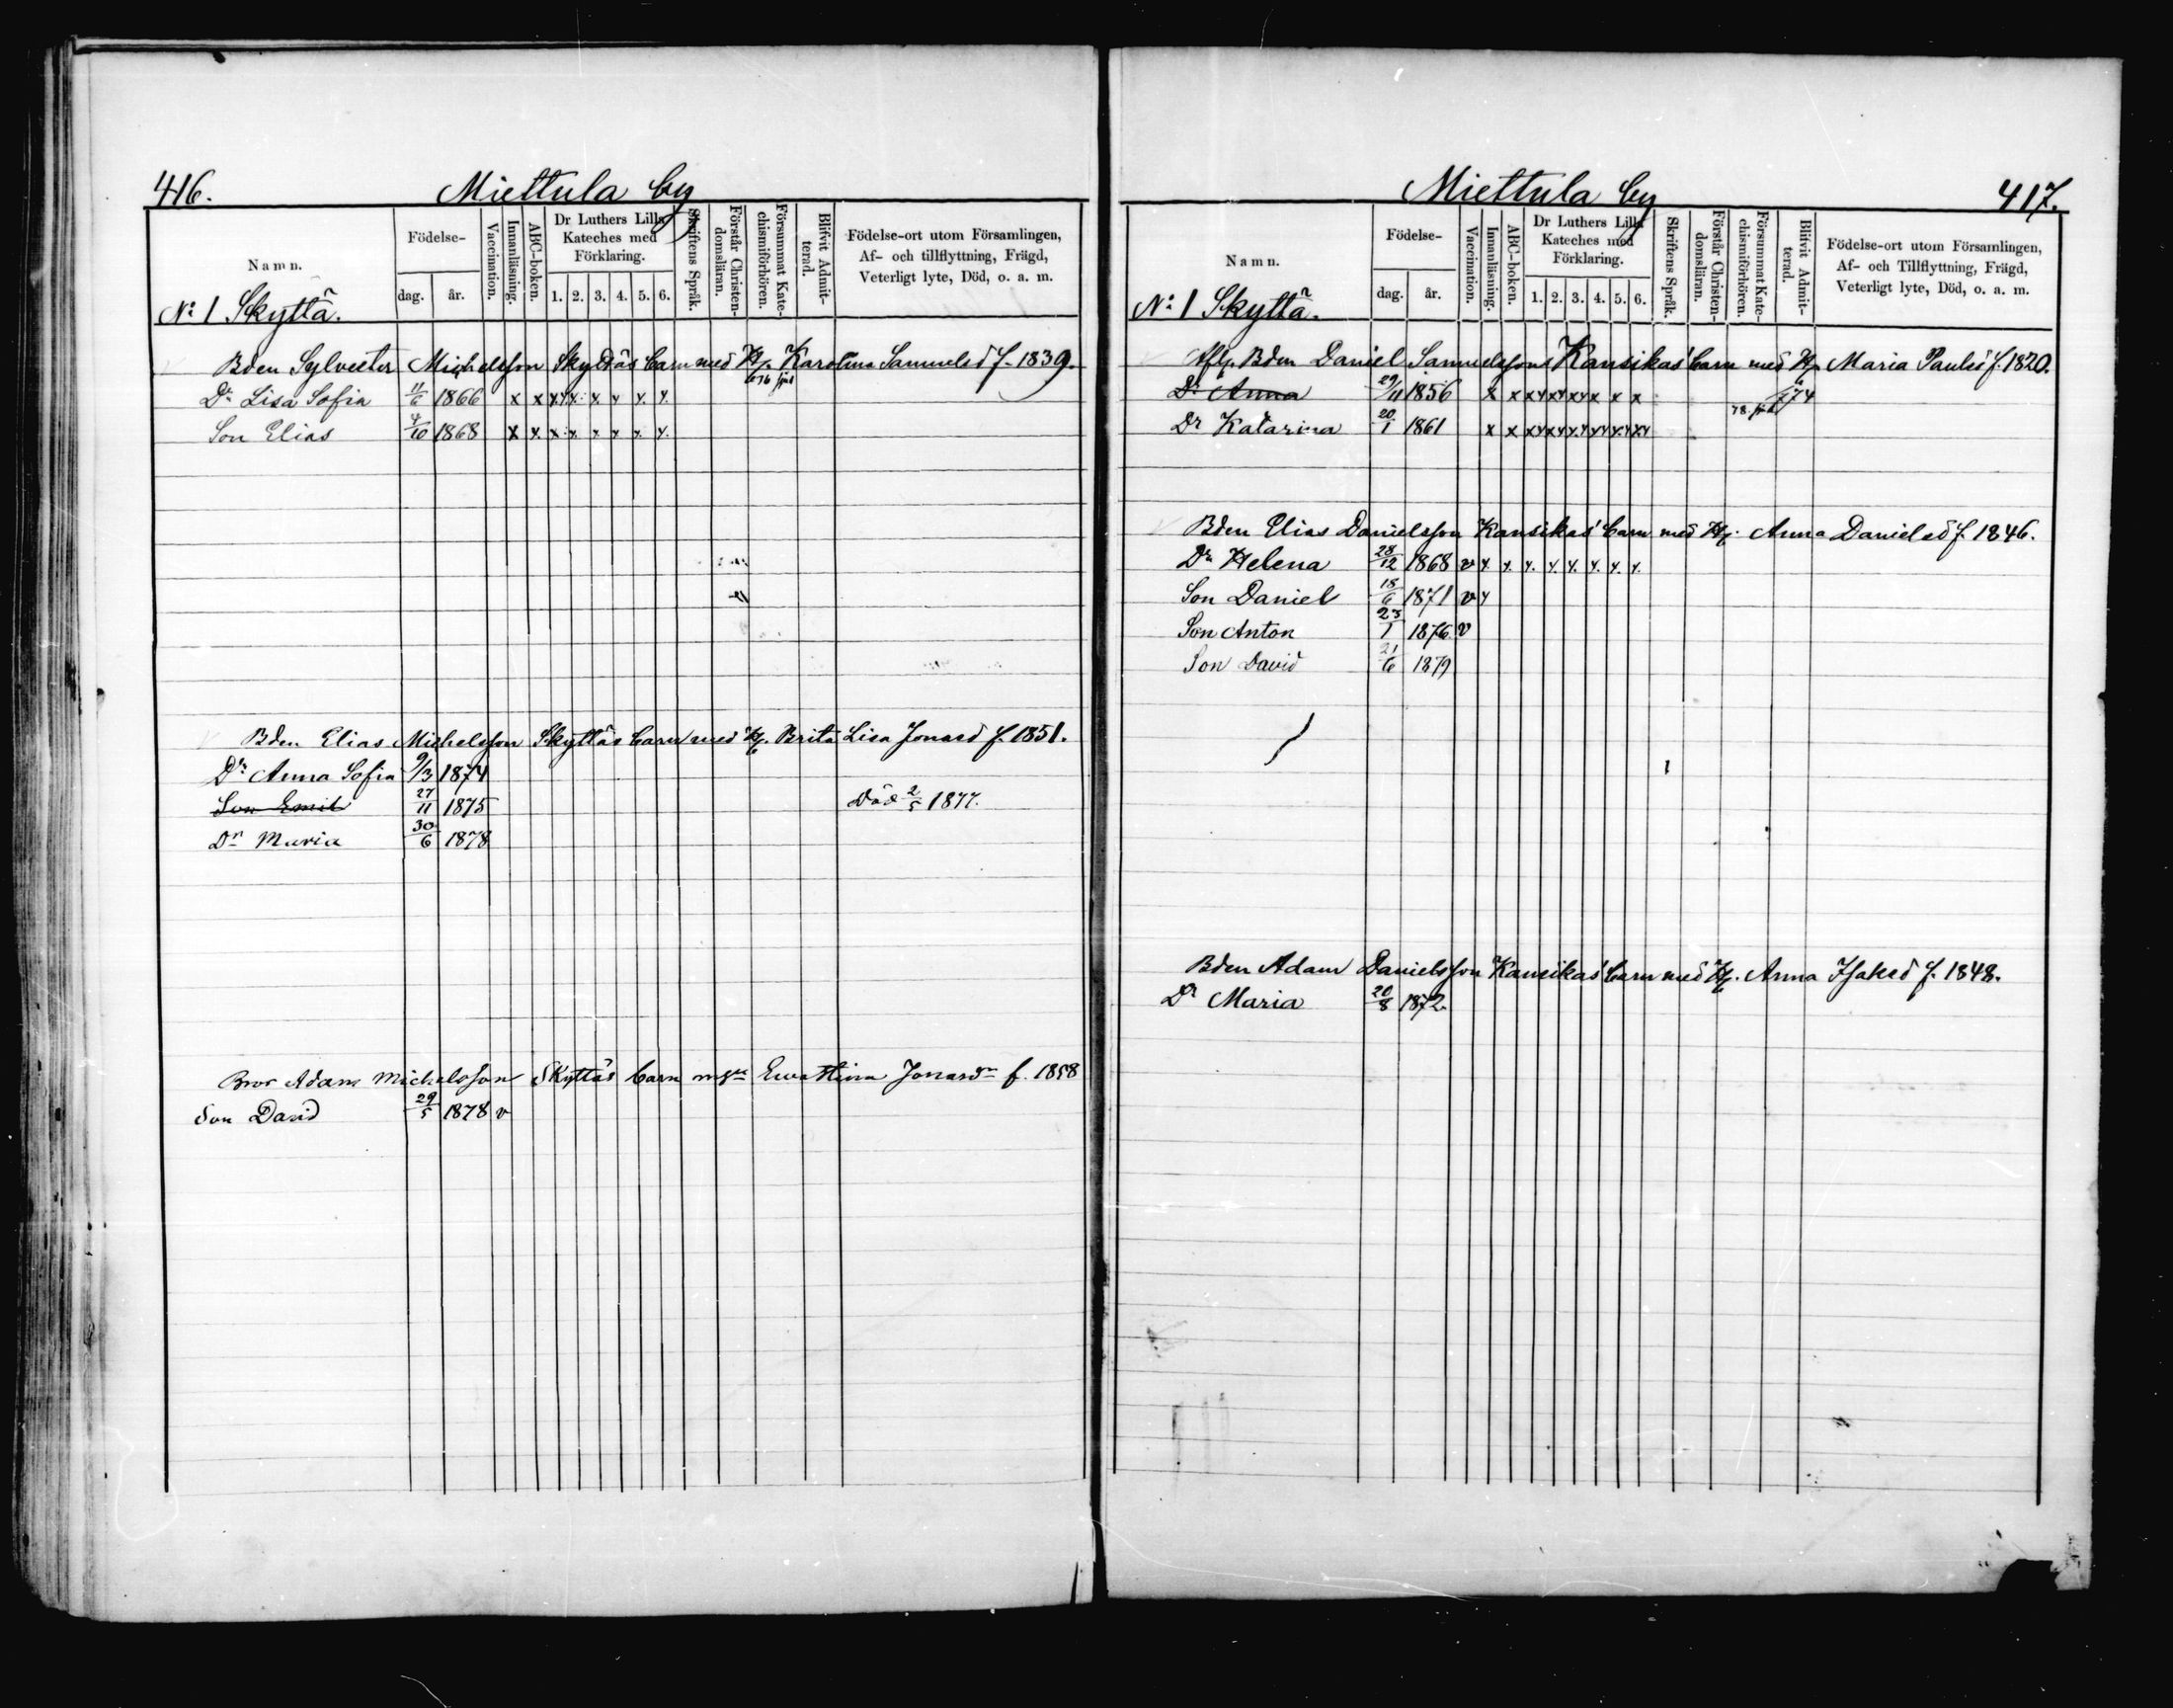 416.
Miettula by
Namn.
Födelse-
dag. år.
Vaccination.
Innanläsning.
ABC-boken.
Dr Luthers Lilla Kateches med Förklaring.
1. 2. 3. 4. 5. 6.
Skriftens Språk.
Förstår Christendomsläran.
Försummat Katechismiförhören.
Blifvit Admitterad.
Födelse-ort utom Församlingen,
Af- och tillflyttning, Frägd,
Veterligt lyte, Död, o. a. m.
No 1 Skyttä.
Bden Sylvester Michelsson Skyttäs barn med H. Karolina Samuelsd f. 1839.
Dr Lisa Sofia 11/6 1866 x x x x x x x x
Son Elias 4/10 1868 x x x x x x x x
Bden Elias Michelsson Skyttäs barn med H. Brita Lisa Jonasd f. 1851.
Dr Anna Sofia 9/3 1874
Son Emil 27/11 1875 Död 2/5 1877.
Dr Maria 30/6 1878
Bror Adam Michelsson Skyttäs barn Jonasdr f. 1858
Son David 29/5 1878 v
Miettula by
417.
Namn.
Födelse-
dag. år.
Vaccination.
Innanläsning.
ABC-boken.
Dr Luthers Lilla Kateches med Förklaring.
1. 2. 3. 4. 5. 6.
Skriftens Språk.
Förstår Christendomsläran.
Försummat Katechismiförhören.
Blifvit Admitterad.
Födelse-ort utom Församlingen,
Af- och Tillflyttning, Frägd,
Veterligt lyte, Död, o. a. m.
No 1 Skyttä.
Bden Daniel Samuelssons Kansikas' barn med H. Maria Paulsd f. 1820.
Dr Anna 29/11 1856 x x xx xx xx x x x 74
Dr Katarina 20/1 1861 x x xx xx xx xx xx xx
Bden Elias Danielsson Kansikas' barn med H. Anna Danielsd f. 1846.
Dr Helena 28/12 1868 v x x x x x x x x
Son Daniel 18/6 1871 v x
Son Anton 23/1 1876 v
Son David 21/6 1879
Bden Adam Danielsson Kansikas' barn med H. Anna Isaksd f. 1848.
Dr Maria 20/8 1872